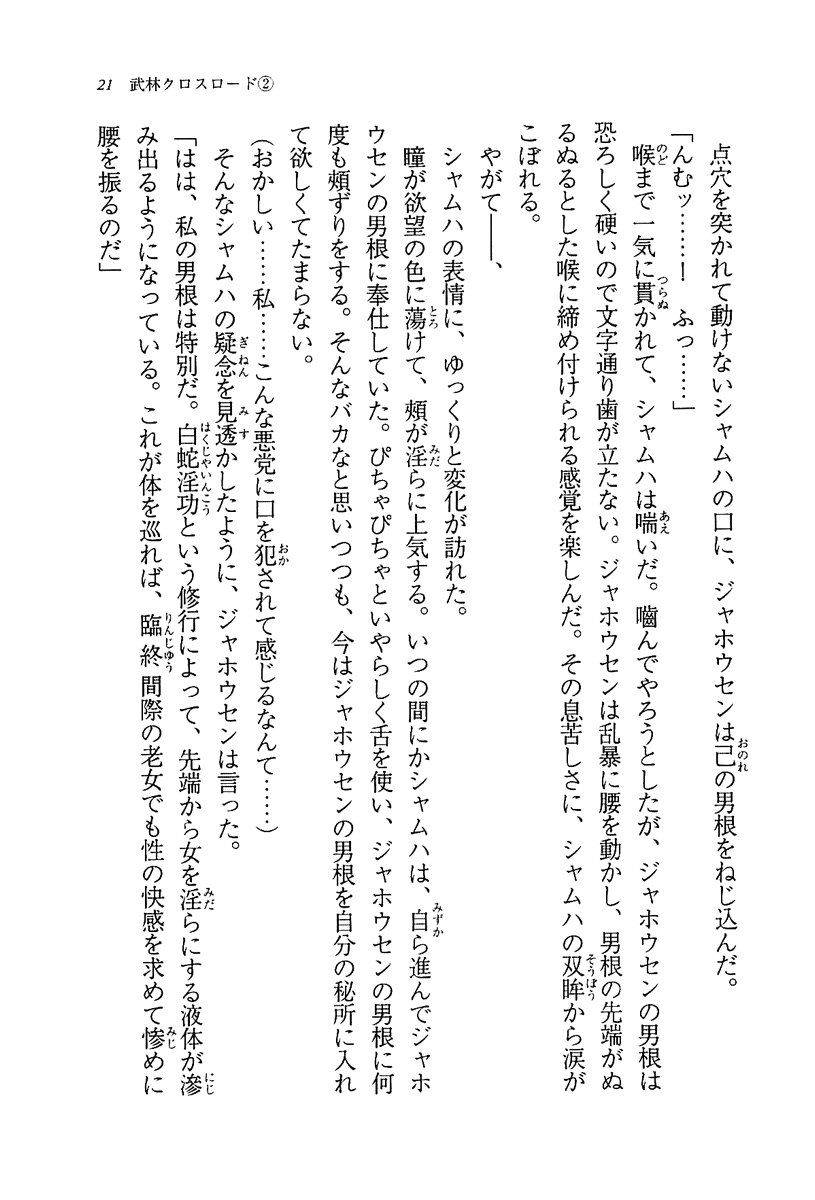 21 武林クロスロード②
点穴を突かれて動けないシャムハの口に、ジャホウセンは己の男根をねじ込んだ。
「んむッ……！　ふっ……」
喉まで一気に貫かれて、シャムハは喘いだ。嚙んでやろうとしたが、ジャホウセンの男根は
恐ろしく硬いので文字通り歯が立たない。ジャホウセンは乱暴に腰を動かし、男根の先端がぬ
るぬるとした喉に締め付けられる感覚を楽しんだ。その息苦しさに、シャムハの双眸から涙が
こぼれる。
やがて――、
シャムハの表情に、ゆっくりと変化が訪れた。
瞳が欲望の色に蕩けて、頰が淫らに上気する。いつの間にかシャムハは、自ら進んでジャホ
ウセンの男根に奉仕していた。ぴちゃぴちゃといやらしく舌を使い、ジャホウセンの男根に何
度も頰ずりをする。そんなバカなと思いつつも、今はジャホウセンの男根を自分の秘所に入れ
て欲しくてたまらない。
（おかしい……私……こんな悪党に口を犯されて感じるなんて……）
そんなシャムハの疑念を見透かしたように、ジャホウセンは言った。
「はは、私の男根は特別だ。白蛇淫功という修行によって、先端から女を淫らにする液体が滲
み出るようになっている。これが体を巡れば、臨終間際の老女でも性の快感を求めて惨めに
腰を振るのだ」